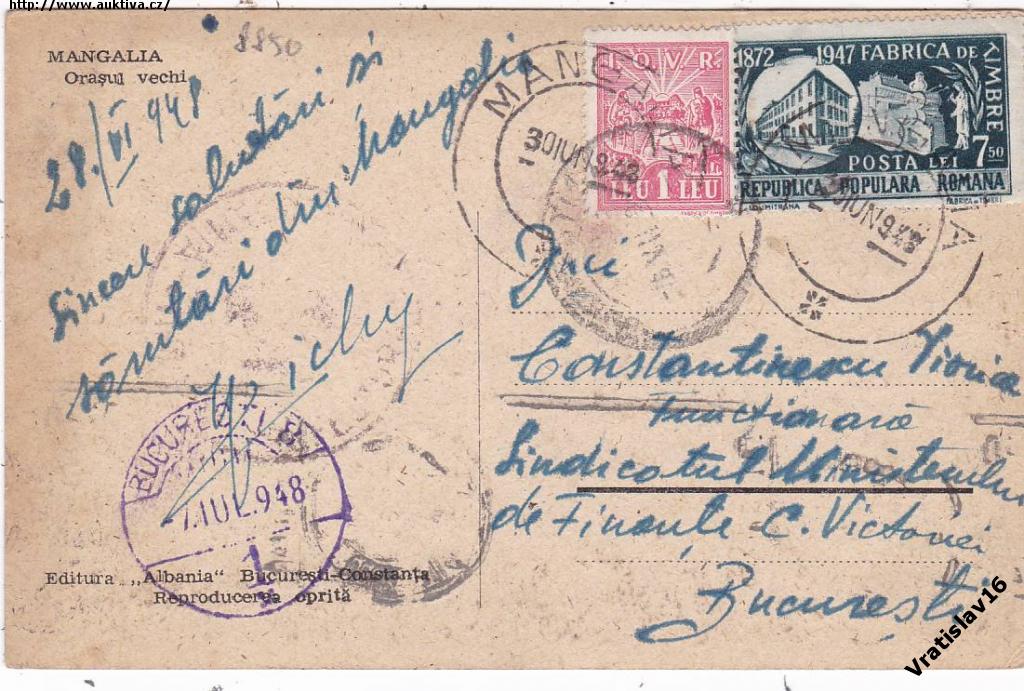 http://www.auktiva.cz/
8850
MANGALIA
Orașul vechi
28./VI 948
Sincere salutări si
sărutări din Mangalia
BUCUREȘTI 8
7 IUL. 948
1
Editura „Albania“ Bucuresti-Constanța
Reproducerea oprită
MANGALIA
30 IUN. 948
I.O.V.R.
LEU 1 LEU
1872 — 1947 FABRICA DE TIMBRE
7 50
POSTA LEI
REPUBLICA POPULARA ROMANA
FABRICA DE TIMBRE
30 IUN. 948
D-nei
Constantinescu Viorica
funcționară
Sindicatul Ministerului
de Finanțe C. Victoriei
București
Vratislav16